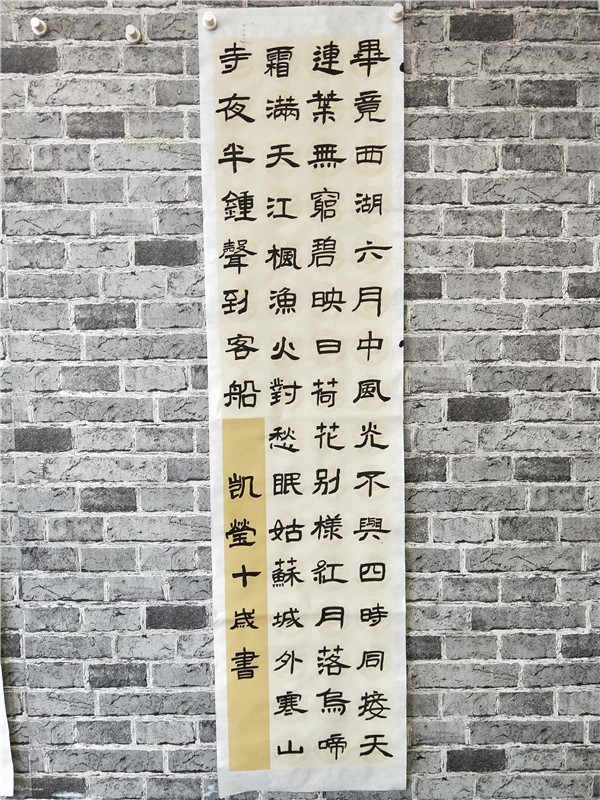 畢竟西湖六月中風光不與四時同接天
連葉無窮碧映日荷花别樣紅月落烏啼
霜滿天江楓漁火對愁眠姑蘇城外寒山
寺夜半鍾聲到客船
凱瑩十歲書